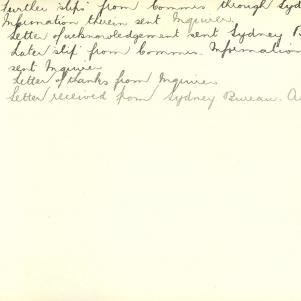 Further "slip" from Commis through Syd
Information therein sent Inquirer.
Letter of acknowledgement sent Sydney B
Later slip from Commis. Information
sent Inquirer
Letter of thanks from Inquirer
Letter received from Sydney Bureau.